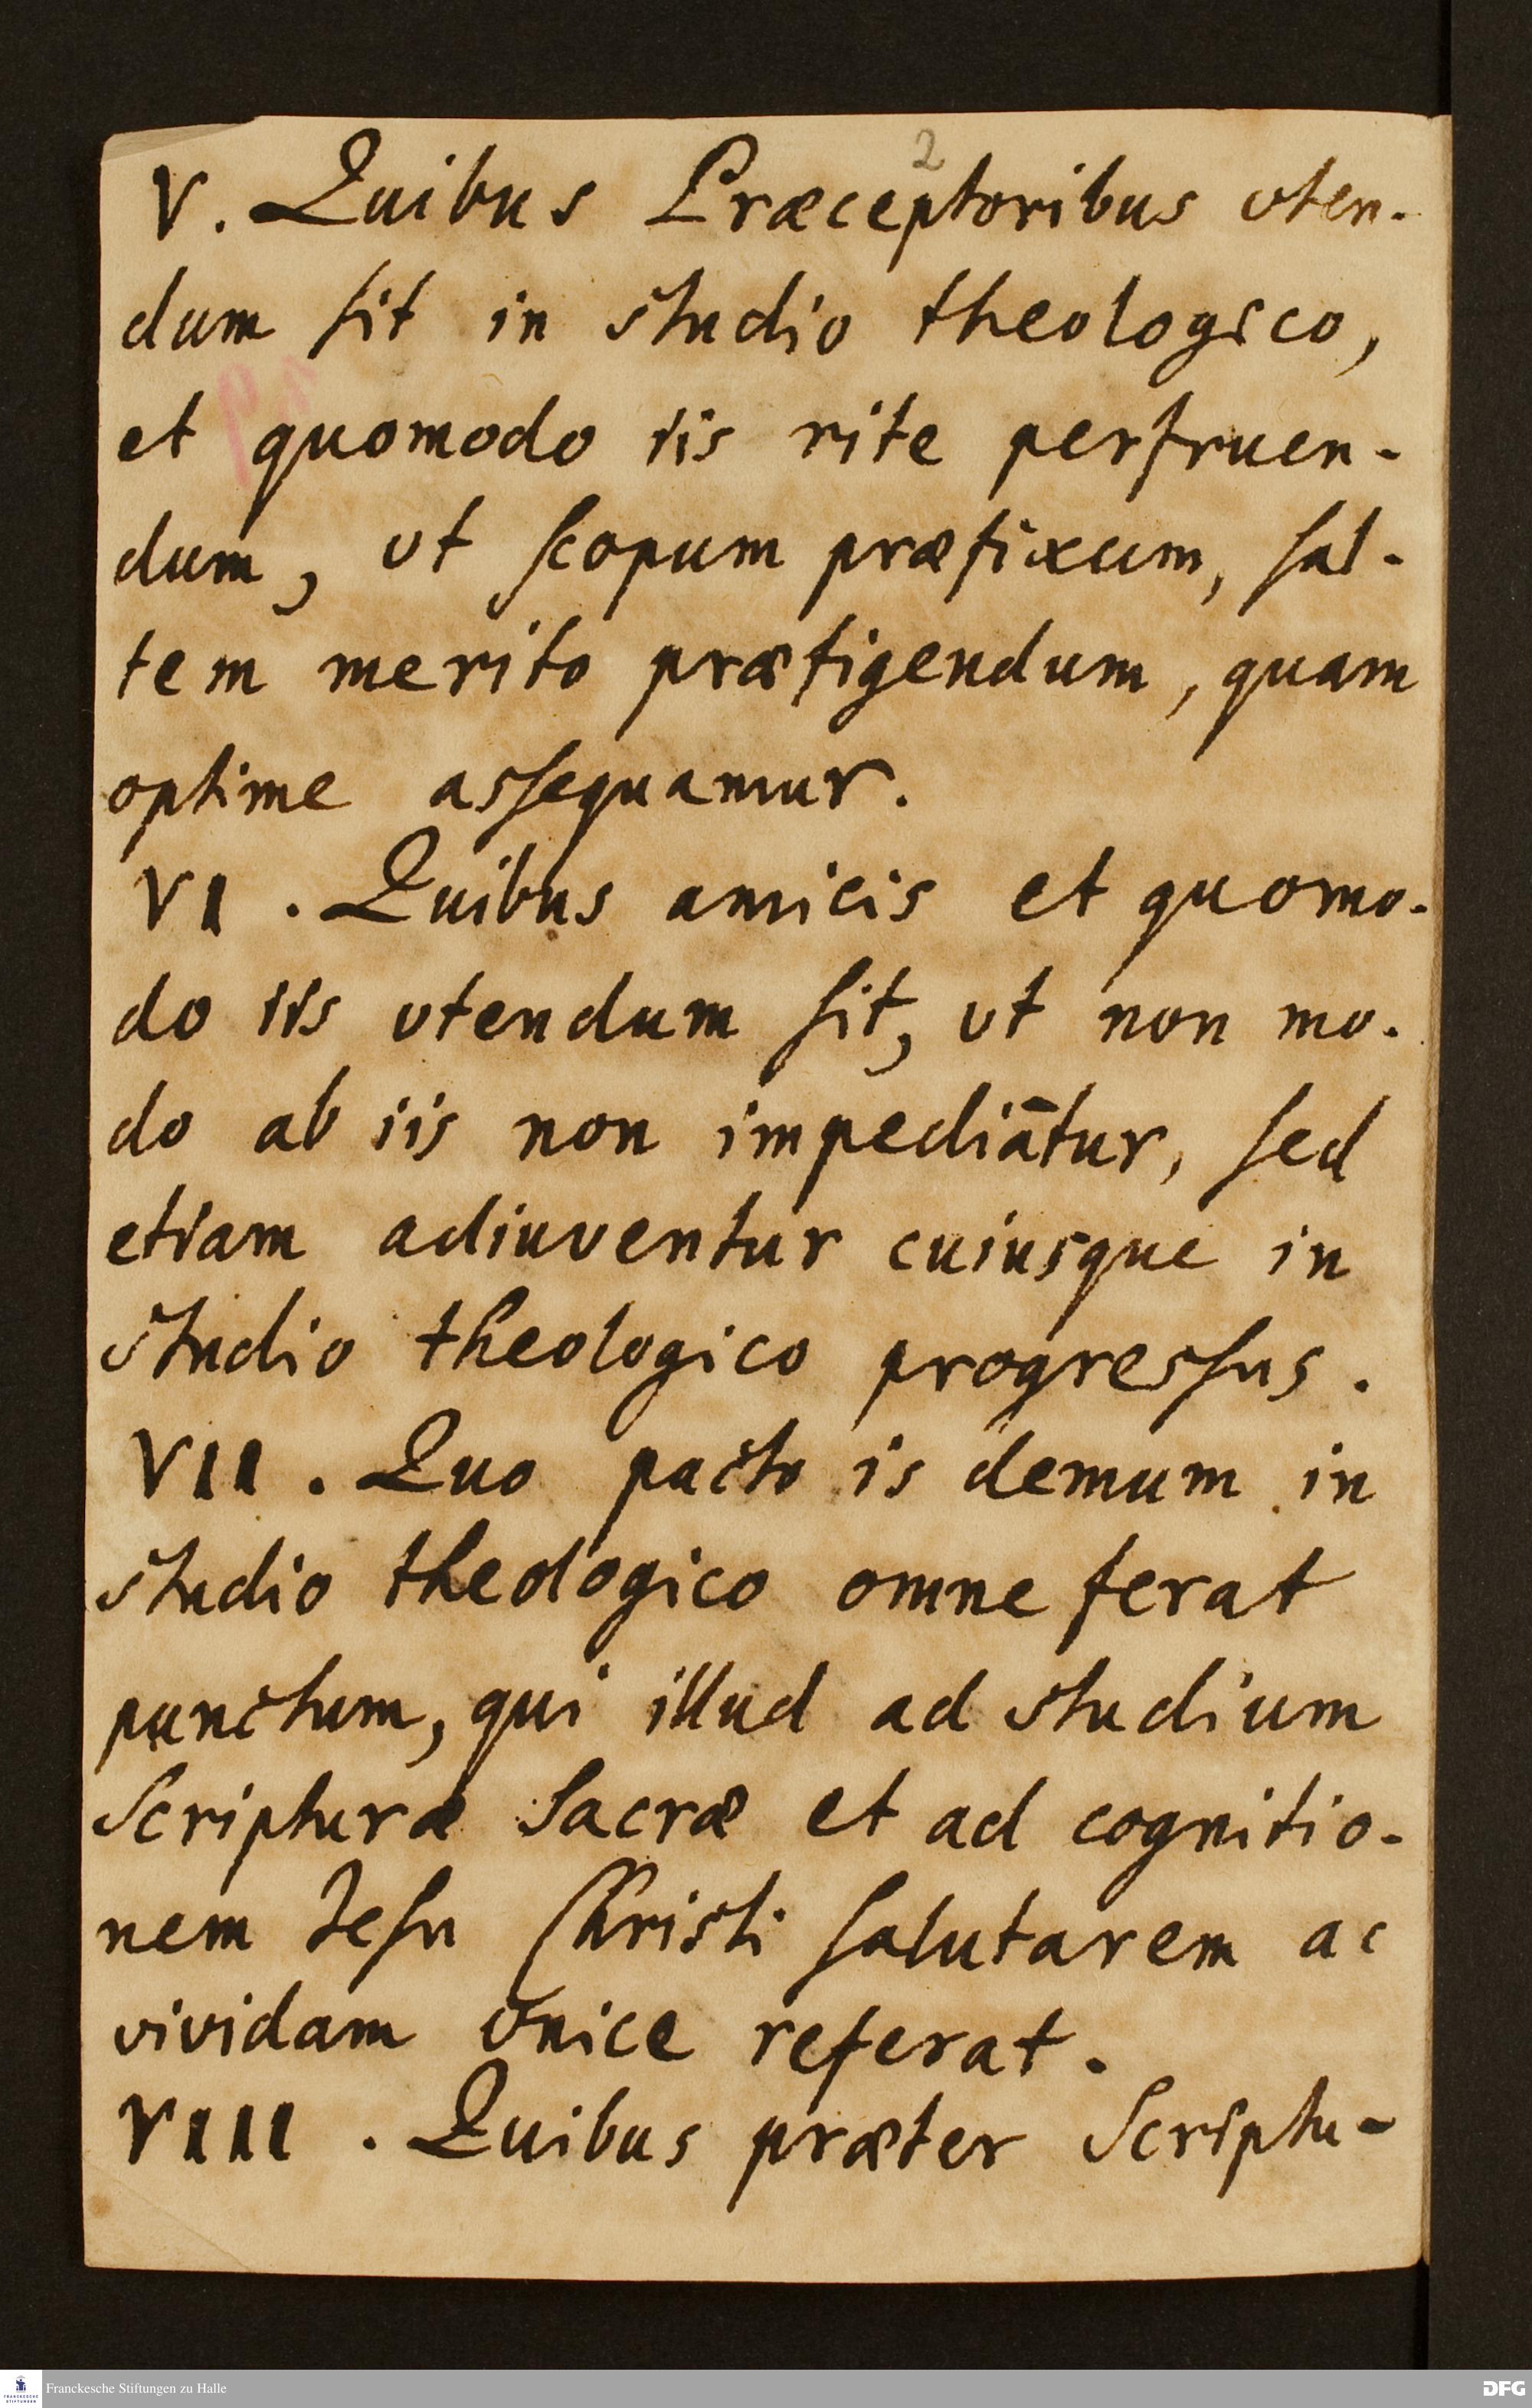 2
V. Quibus Præceptoribus vten-
dum sit in studio theologico,
et quomodo iis rite perfruen-
dum, vt scopum præfixum, sal-
tem merito præfigendum, quam
optime assequamur.
VI. Quibus amicis et quomo-
do iis vtendum sit, vt non mo-
do ab iis non impediātur, sed
etiam adiuventur cuiusque in
studio theologico progressus.
VII. Quo pacto is demum in
studio theologico omne ferat
punctum, qui illud ad studium
Scripturæ Sacræ et ad cognitio-
nem Iesu Christi salutarem ac
vividam vnice referat.
VIII. Quibus præter Scriptu-
Franckesche Stiftungen zu Halle
DFG